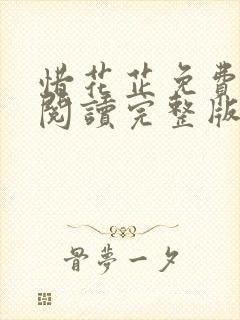 惜花芷免費
閱讀完整版
骨夢一夕